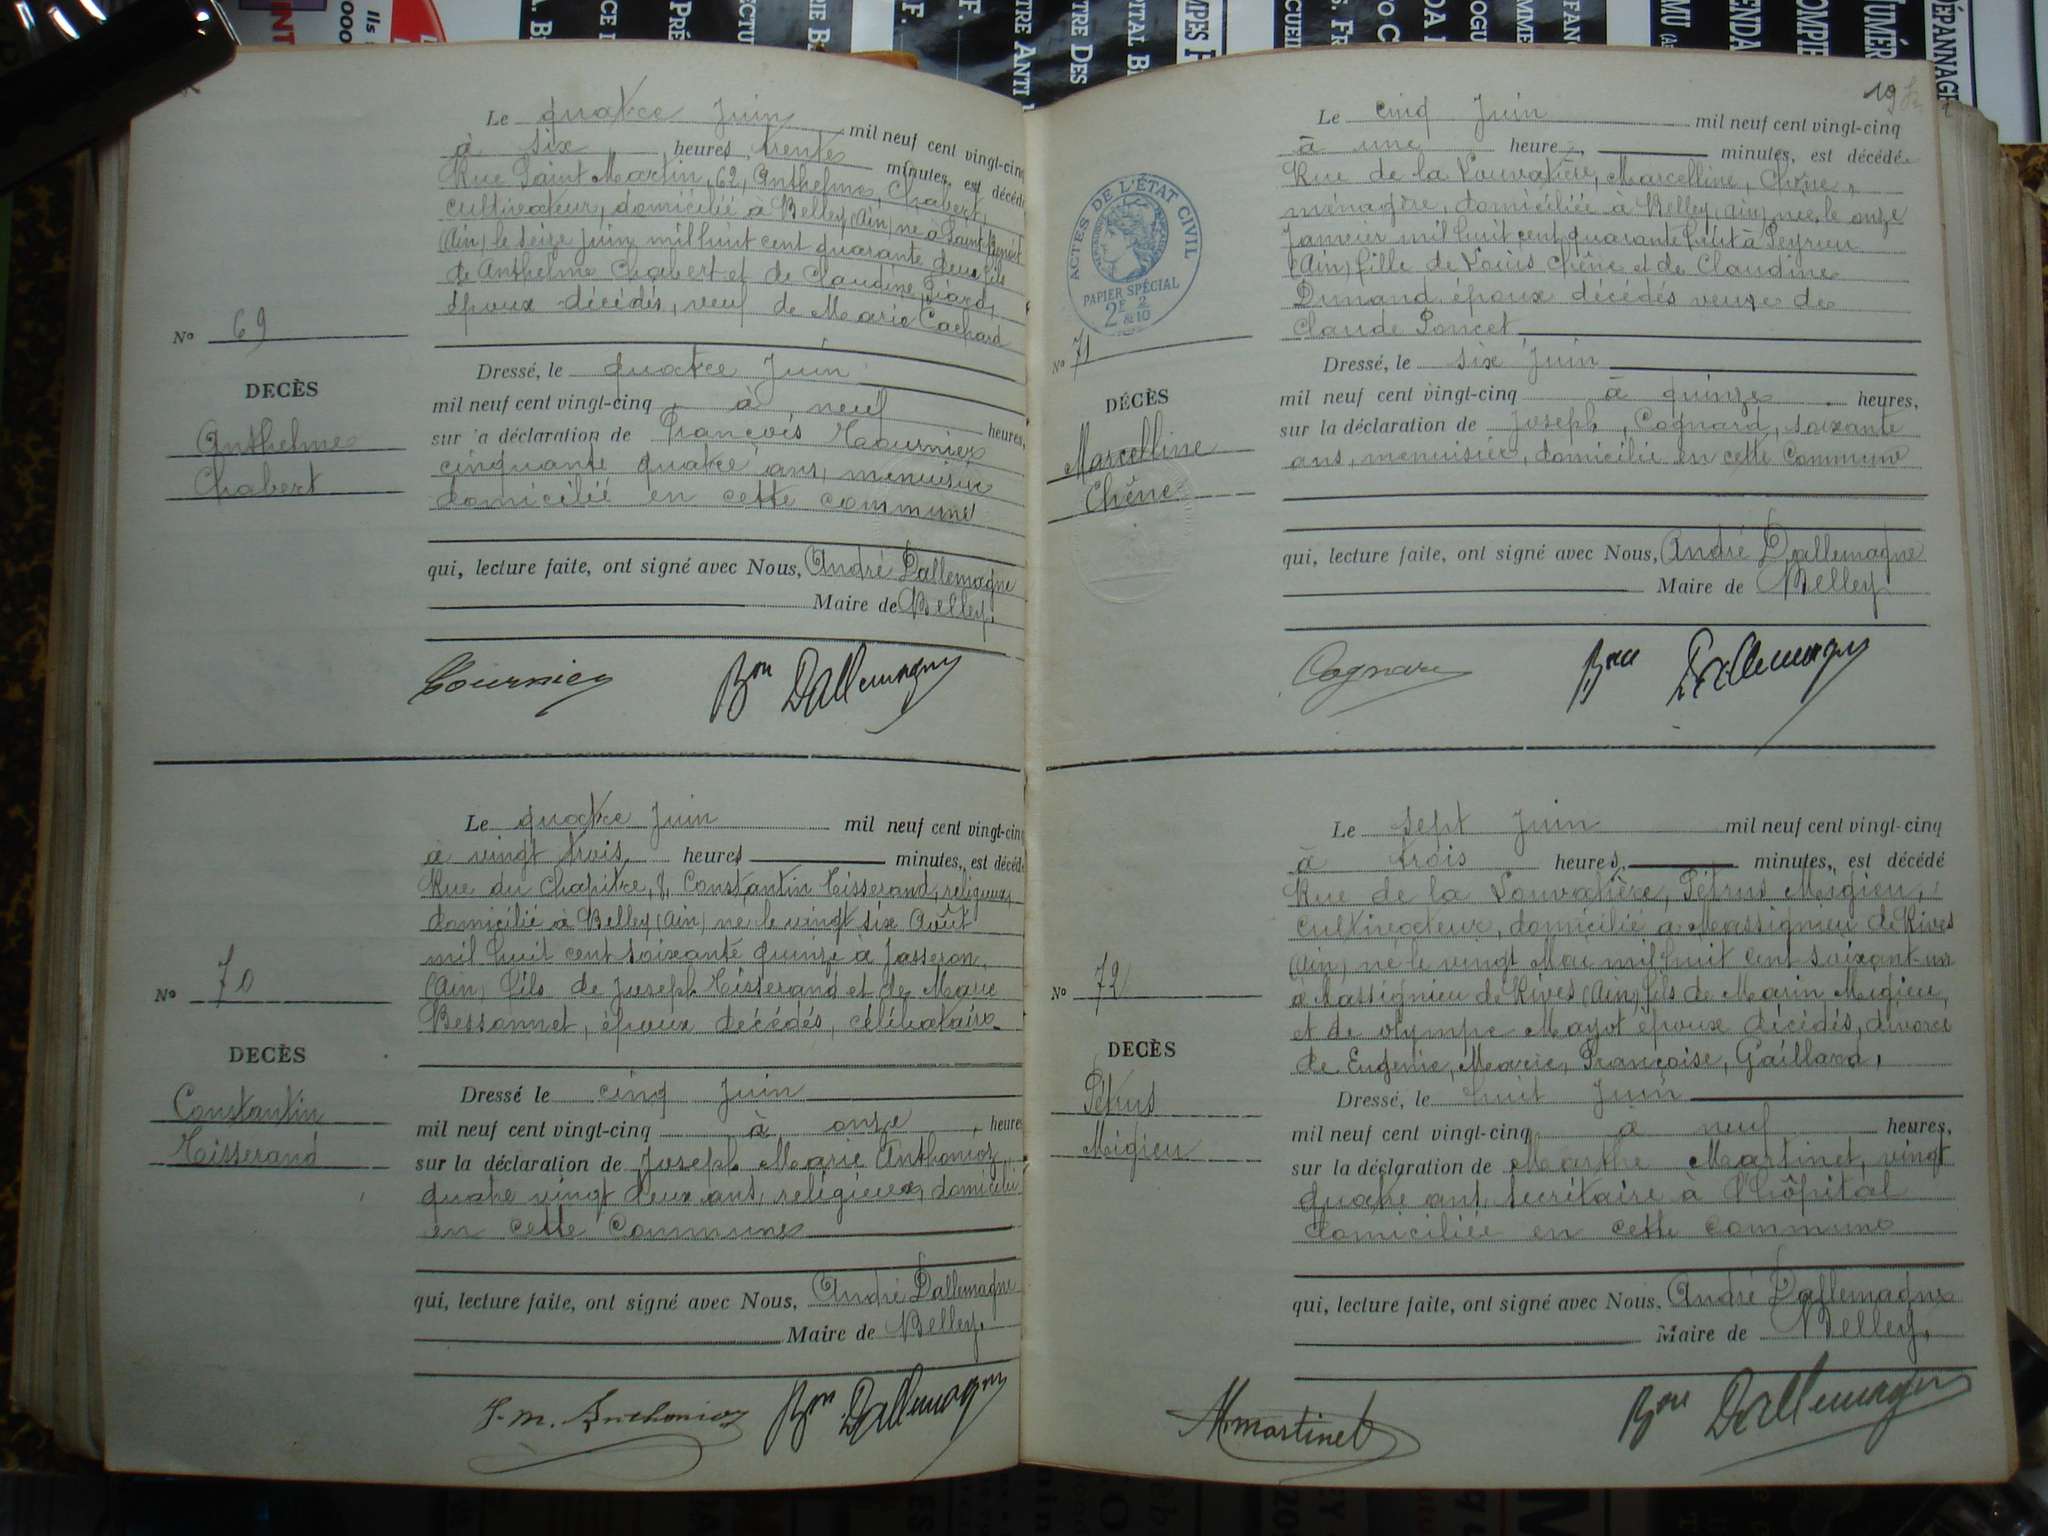 Le quatre Juin mil neuf cent vingt-cinq
à six heures trente minutes, est décédé
Rue Saint Martin, 62, Anthelme, Chabert,
cultivateur, domicilié à Belley (Ain) né à Saint-Benoit
(Ain) le seize Juin mil huit cent quarante deux fils
de Anthelme Chabert et de Claudine Piard,
époux décédés, veuf de Marie Cochard
No 69
DECÈS
Anthelme
Chabert
Dressé, le quatre Juin
mil neuf cent vingt-cinq à neuf heures,
sur la déclaration de François
cinquante quatre ans, menuisier
domicilié en cette commune
qui, lecture faite, ont signé avec Nous, André Dallemagne
Maire de Belley.
Bon Dallemagne
Le quatre Juin mil neuf cent vingt-cinq
à vingt trois heures minutes, est décédé
Rue du Chapitre, 8, Constantin Tisserand, religieux,
domicilié à Belley (Ain) né le vingt six Août
mil huit cent soixante quinze à Jasseron
(Ain) fils de Joseph Tisserand et de Marie
Bessonnet, époux décédés, célibataire
No 70
DECÈS
Constantin
Tisserand
Dressé le cinq Juin
mil neuf cent vingt-cinq à onze heures
sur la déclaration de Joseph Marie Anthonioz
quatre vingt deux ans, religieux, domicilié
en cette commune
qui, lecture faite, ont signé avec Nous, André Dallemagne
Maire de Belley.
J. M. Anthonioz Bon Dallemagne
19
Le cinq Juin mil neuf cent vingt-cinq
à une heure, minutes, est décédée
Rue de la Louvatière, Marcelline, Chêne,
ménagère, domiciliée à Belley (Ain) née le onze
Janvier mil huit cent quarante huit à Peyrieu
(Ain) fille de Louis Chêne et de Claudine
Dunand époux décédés veuve de
Claude Poncet
ACTES DE L'ÉTAT CIVIL
PAPIER SPÉCIAL
2F & 2/10
No 71
DÉCÈS
Marcelline
Chêne
Dressé, le six Juin
mil neuf cent vingt-cinq à quinze heures,
sur la déclaration de Joseph, Cognard, soixante
ans, menuisier, domicilié en cette Commune
qui, lecture faite, ont signé avec Nous, André Dallemagne
Maire de Belley
Cognard Bon Dallemagne
Le sept Juin mil neuf cent vingt-cinq
à trois heures, minutes, est décédé
Rue de la Louvatière, Pétrus Migieu,
cultivateur, domicilié à Massignieu de Rives
(Ain) né le vingt Mai mil huit cent soixant-un
à Massignieu de Rives (Ain) fils de Marin Migieu
et de Olympe Mayot époux décédés, divorcé
de Eugénie, Marie, Françoise, Gaillard,
No 72
DECÈS
Pétrus
Migieu
Dressé, le huit Juin
mil neuf cent vingt-cinq à neuf heures,
sur la déclaration de Marthe Martinet, vingt
quatre ans, secrétaire à l'hôpital
domiciliée en cette commune
qui, lecture faite, ont signé avec Nous, André Dallemagne
Maire de Belley,
M martinet Bon Dallemagne